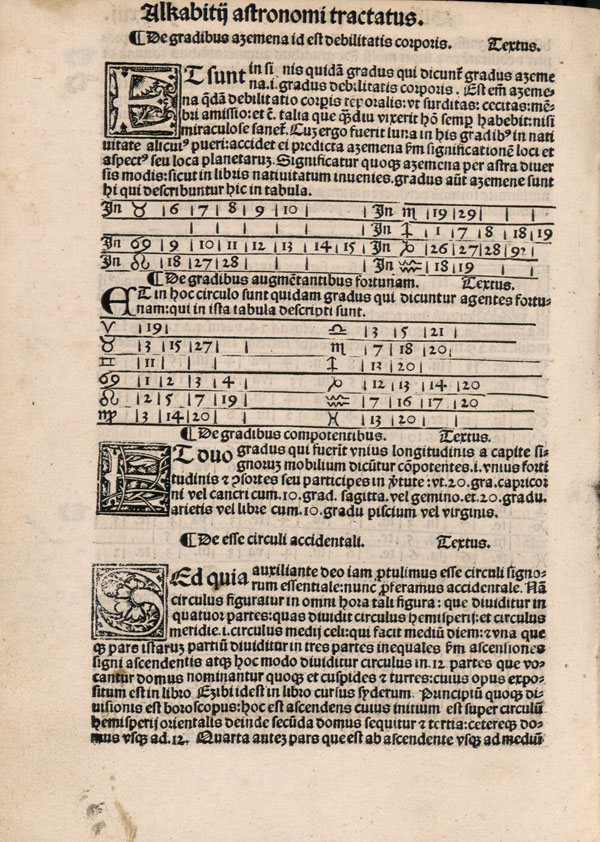 Alkabitij astronomi tractatus.
¶ De gradibus azemena id est debilitatis corporis. Textus.
Et sunt in si nis quidā gradus qui dicunt̄ gradus azeme
na .i. gradus debilitatis corporis. Est em̄ azeme-
na q̄dā debilitatio corꝑis tēporalis: vt surditas: cecitas: mē-
bri amissio: et c̄. talia que q̄diu vixerit hō semꝑ habebit: nisi
miraculose sanet̄. Cuz ergo fuerit luna in his gradibꝰ in nati
uitate alicuiꝰ pueri: accidet ei predicta azemena ẜm significationē loci et
aspectꝰ seu loca planetaruꝫ. Significatur quoqꝫ azemena per astra diuer
sis modis: sicut in libris natiuitatum inuenies. gradus aūt azemene sunt
hi qui describuntur hic in tabula.
In ♉ | 6 | 7 | 8 | 9 | 10 | | In ♏ | 19 | 29 | | |
| | | | | | | In ♐ | 1 | 7 | 8 | 18 | 19
In ♋ | 9 | 10 | 11 | 12 | 13 | 14 | 15 | In ♑ | 26 | 27 | 28 | 9?
In ♌ | 18 | 27 | 28 | | | | | In ♒ | 18 | 19 | | |
¶ De gradibus augmētantibus fortunam. Textus.
Et in hoc circulo sunt quidam gradus qui dicuntur agentes fortu-
nam: qui in ista tabula descripti sunt.
♈ | 19 | | | ♎ | 3 | 5 | 21 |
♉ | 3 | 15 | 27 | ♏ | 7 | 18 | 20 |
♊ | 11 | | | ♐ | 13 | 20 |
♋ | 1 | 2 | 3 | 4 | ♑ | 12 | 13 | 14 | 20
♌ | 2 | 5 | 7 | 19 | ♒ | 7 | 16 | 17 | 20
♍ | 3 | 14 | 20 | ♓ | 13 | 20 |
¶ De gradibus compotentibus. Textus.
Et duo gradus qui fuerit vnius longitudinis a capite si-
gnoruꝫ mobilium dicūtur cōpotentes .i. vnius forti
tudinis ⁊ ꝯsortes seu participes in v̄tute: vt .20. gra. capricor
ni vel cancri cum .10. grad. sagitta. vel gemino. et .20. gradu.
arietis vel libre cum .10. gradu piscium vel virginis.
¶ De esse circuli accidentali. Textus.
Sed quia auxiliante deo iam ꝓtulimus esse circuli signo-
rum essentiale: nunc ꝓferamus accidentale. Nā
circulus figuratur in omni hora tali figura: que diuiditur in
quatuor partes: quas diuidit circulus hemisperij: et circulus
meridie .i. circulus medij celi: qui facit mediū diem: ⁊ vna que
qꝫ pars istaruꝫ partiū diuiditur in tres partes inequales ẜm ascensiones
signi ascendentis atqꝫ hoc modo diuiditur circulus in .12. partes que vo-
cantur domus nominantur quoqꝫ et cuspides ⁊ turres: cuius opus expo-
situm est in libro Ezibi id est in libro cursus syderum. Principiū quoqꝫ di-
uisionis est horoscopus: hoc est ascendens cuius initium est super circulū
hemisperij orientalis deinde secūda domus sequitur ⁊ tertia: cetereqꝫ do-
mus vsqꝫ ad .12. Quarta autez pars que est ab ascendente vsqꝫ ad mediū